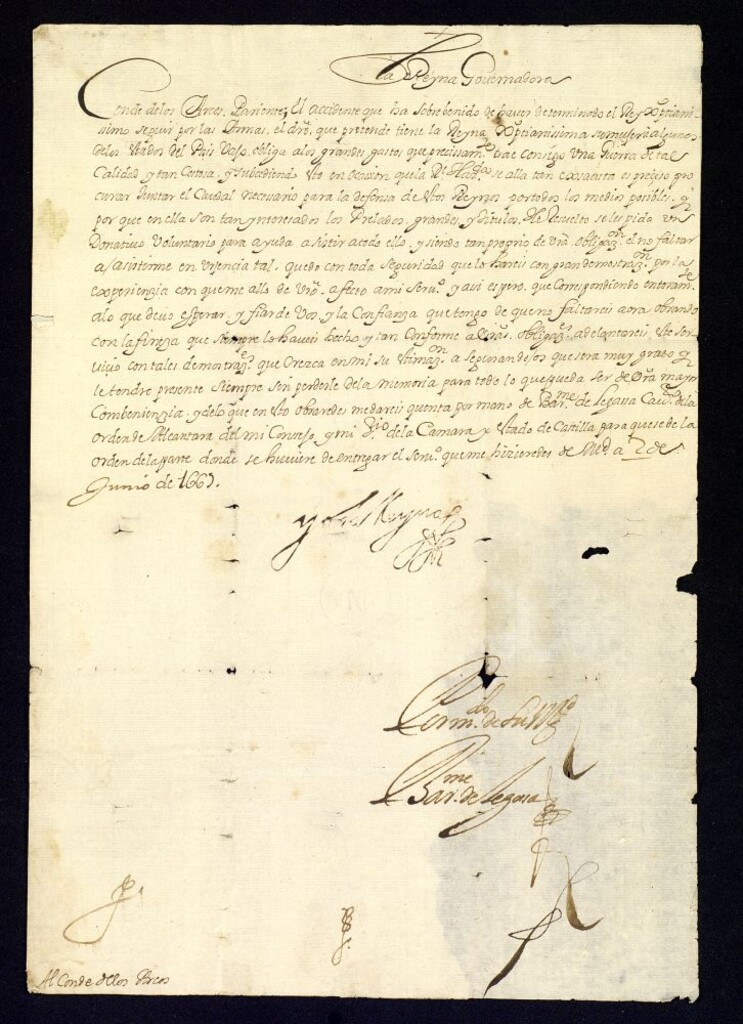 La Reyna Gouernadora
Conde de los Arcos. Pariente; El accidente que ha sobrebenido de hauer determinado el Rey Xptianis
simo seguir por las Armas, el dro. que pretende tiene la Reyna Xptianissima su muger a algunos
de los stados del Pais Vaso, obliga a los grandes gastos que precissamte. trae consigo Vna Guerra de tal
Calidad y tan Costosa, y subcediendo sto en ocasion que la Rl. Hazda. se alla tan exsausta es preciso pro
curar Juntar el Caudal necesario para la defensa de stos Reynos por todos los medios posibles, y
por que en ella son tan ynteresados los Prelados, grandes, y titulos, He resuelto se les pida Vn
Donatiuo Voluntario para ayuda a sistir a todo ello, y siendo tan proprio de Vra. obligazon. el no faltar
a asistirme en Vrjencia tal, quedo con toda seguridad que lo hareis con gran demostrazon. por la
experiencia con que me allo de Vro. afecto a mi seruo. y asi espero, que Correspondiendo enteramte.
a lo que deuo esperar, y fiar de Vos, y la Confianza que tengo de que no faltareis aora obrando
con la fineza que siempre lo haueis hecho, y tan Conforme a Vras. obligazes. adelantareis ste ser
uicio con tales demostraes. que Crezca en mi su stimazon. asegurandoos que sera muy grato y
le tendre presente siempre sin perderle de la memoria para todo lo que pueda ser de Vra mayor
Combenienzia, y de lo que en sto obraredes me dareis quenta por mano de Barme. de Legasa Cauo. de la
orden de Alcantara del mi Consejo, y mi srio. de la Camara y stado de Castilla para que se de la
orden de la parte donde se huuiere de entregar el seruo. que me hizieredes de Md. a 2 de
Junio de 1667.
yo la Reyna
Por mdo. de su Magd.
Barme. de Legasa
Al Conde de los Arcos